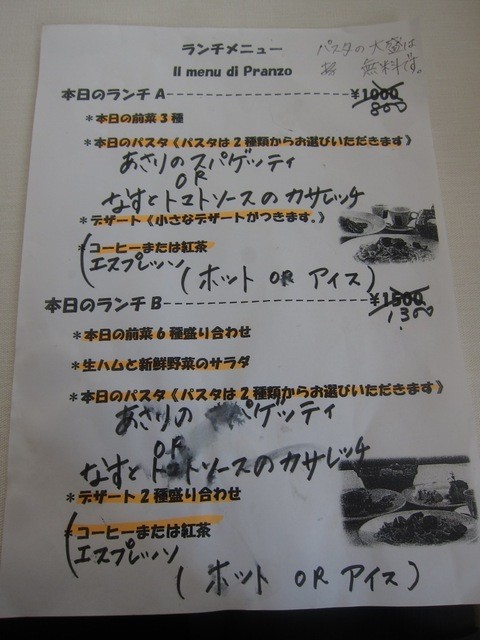 ランチメニュー
Il menu di Pranzo
パスタの大盛は
無料です。
本日のランチA ¥1000
800
*本日の前菜3種
*本日のパスタ《パスタは2種類からお選びいただきます》
あさりのスパゲッティ
OR
なすとトマトソースのカサレッチ
*デザート《小さなデザートがつきます。》
*コーヒーまたは紅茶
エスプレッソ
(ホット OR アイス)
本日のランチB ¥1500
1,300
*本日の前菜6種盛り合わせ
*生ハムと新鮮野菜のサラダ
*本日のパスタ《パスタは2種類からお選びいただきます》
あさりのスパゲッティ
OR
なすとトマトソースのカサレッチ
*デザート2種盛り合わせ
*コーヒーまたは紅茶
エスプレッソ
(ホット OR アイス)